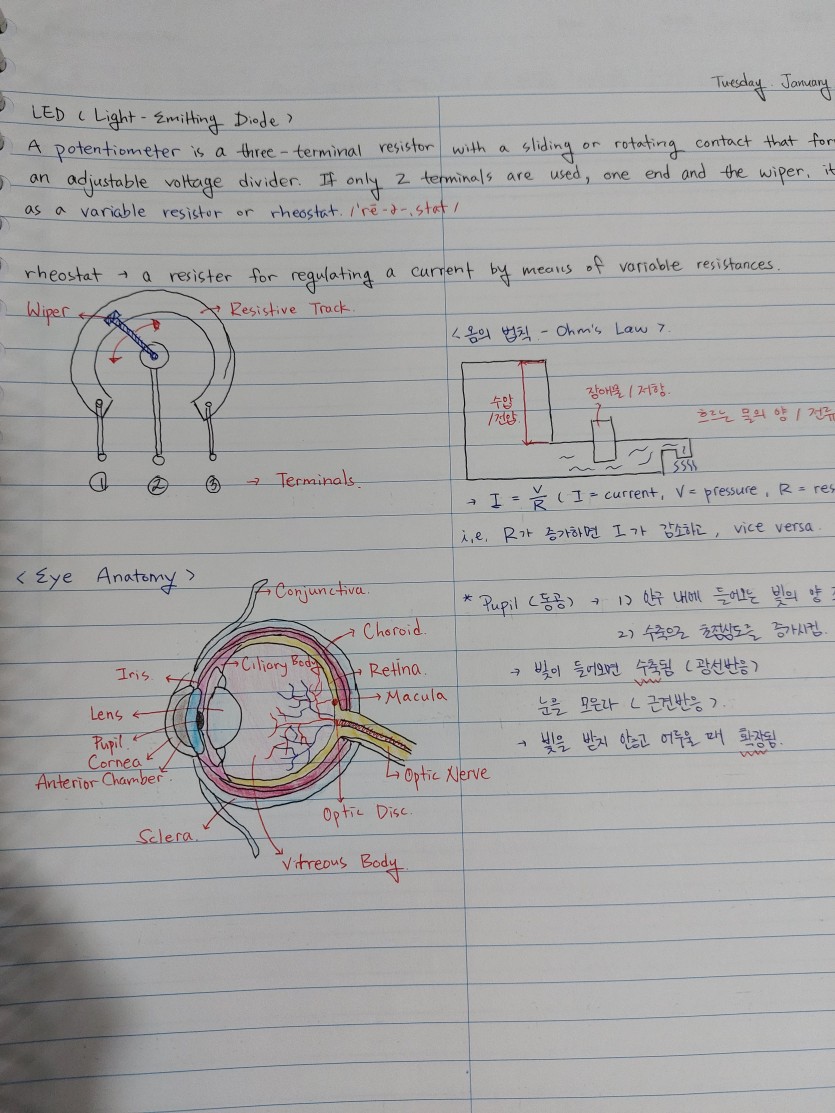 Tuesday. January
LED (Light-Emitting Diode)
A potentiometer is a three-terminal resistor with a sliding or rotating contact that for
an adjustable voltage divider. If only 2 terminals are used, one end and the wiper, it
as a variable resistor or rheostat. /'rē-ə-,stat/
rheostat → a resister for regulating a current by means of variable resistances.
Wiper
Resistive Track.
① ② ③ → Terminals.
<옴의 법칙 - Ohm's Law>.
수압
/전압
장애물 / 저항.
흐르는 물의 양 / 전류
→ I = V/R ( I = current, V = pressure, R = res
i,e, R가 증가하면 I가 감소하고, vice versa.
<Eye Anatomy>
Conjunctiva.
Choroid.
Ciliary Body
Iris.
Retina.
Macula
Lens
Pupil
Cornea
Anterior Chamber
Optic Nerve
Optic Disc.
Sclera.
Vitreous Body
* Pupil (동공) → 1) 안구 내에 들어오는 빛의 양
2) 수축으로 초점심도를 증가시킴.
→ 빛이 들어오면 수축됨 (광선반응)
눈을 모은다 (근견반응).
→ 빛을 받지 않고 어두울 때 확장됨.